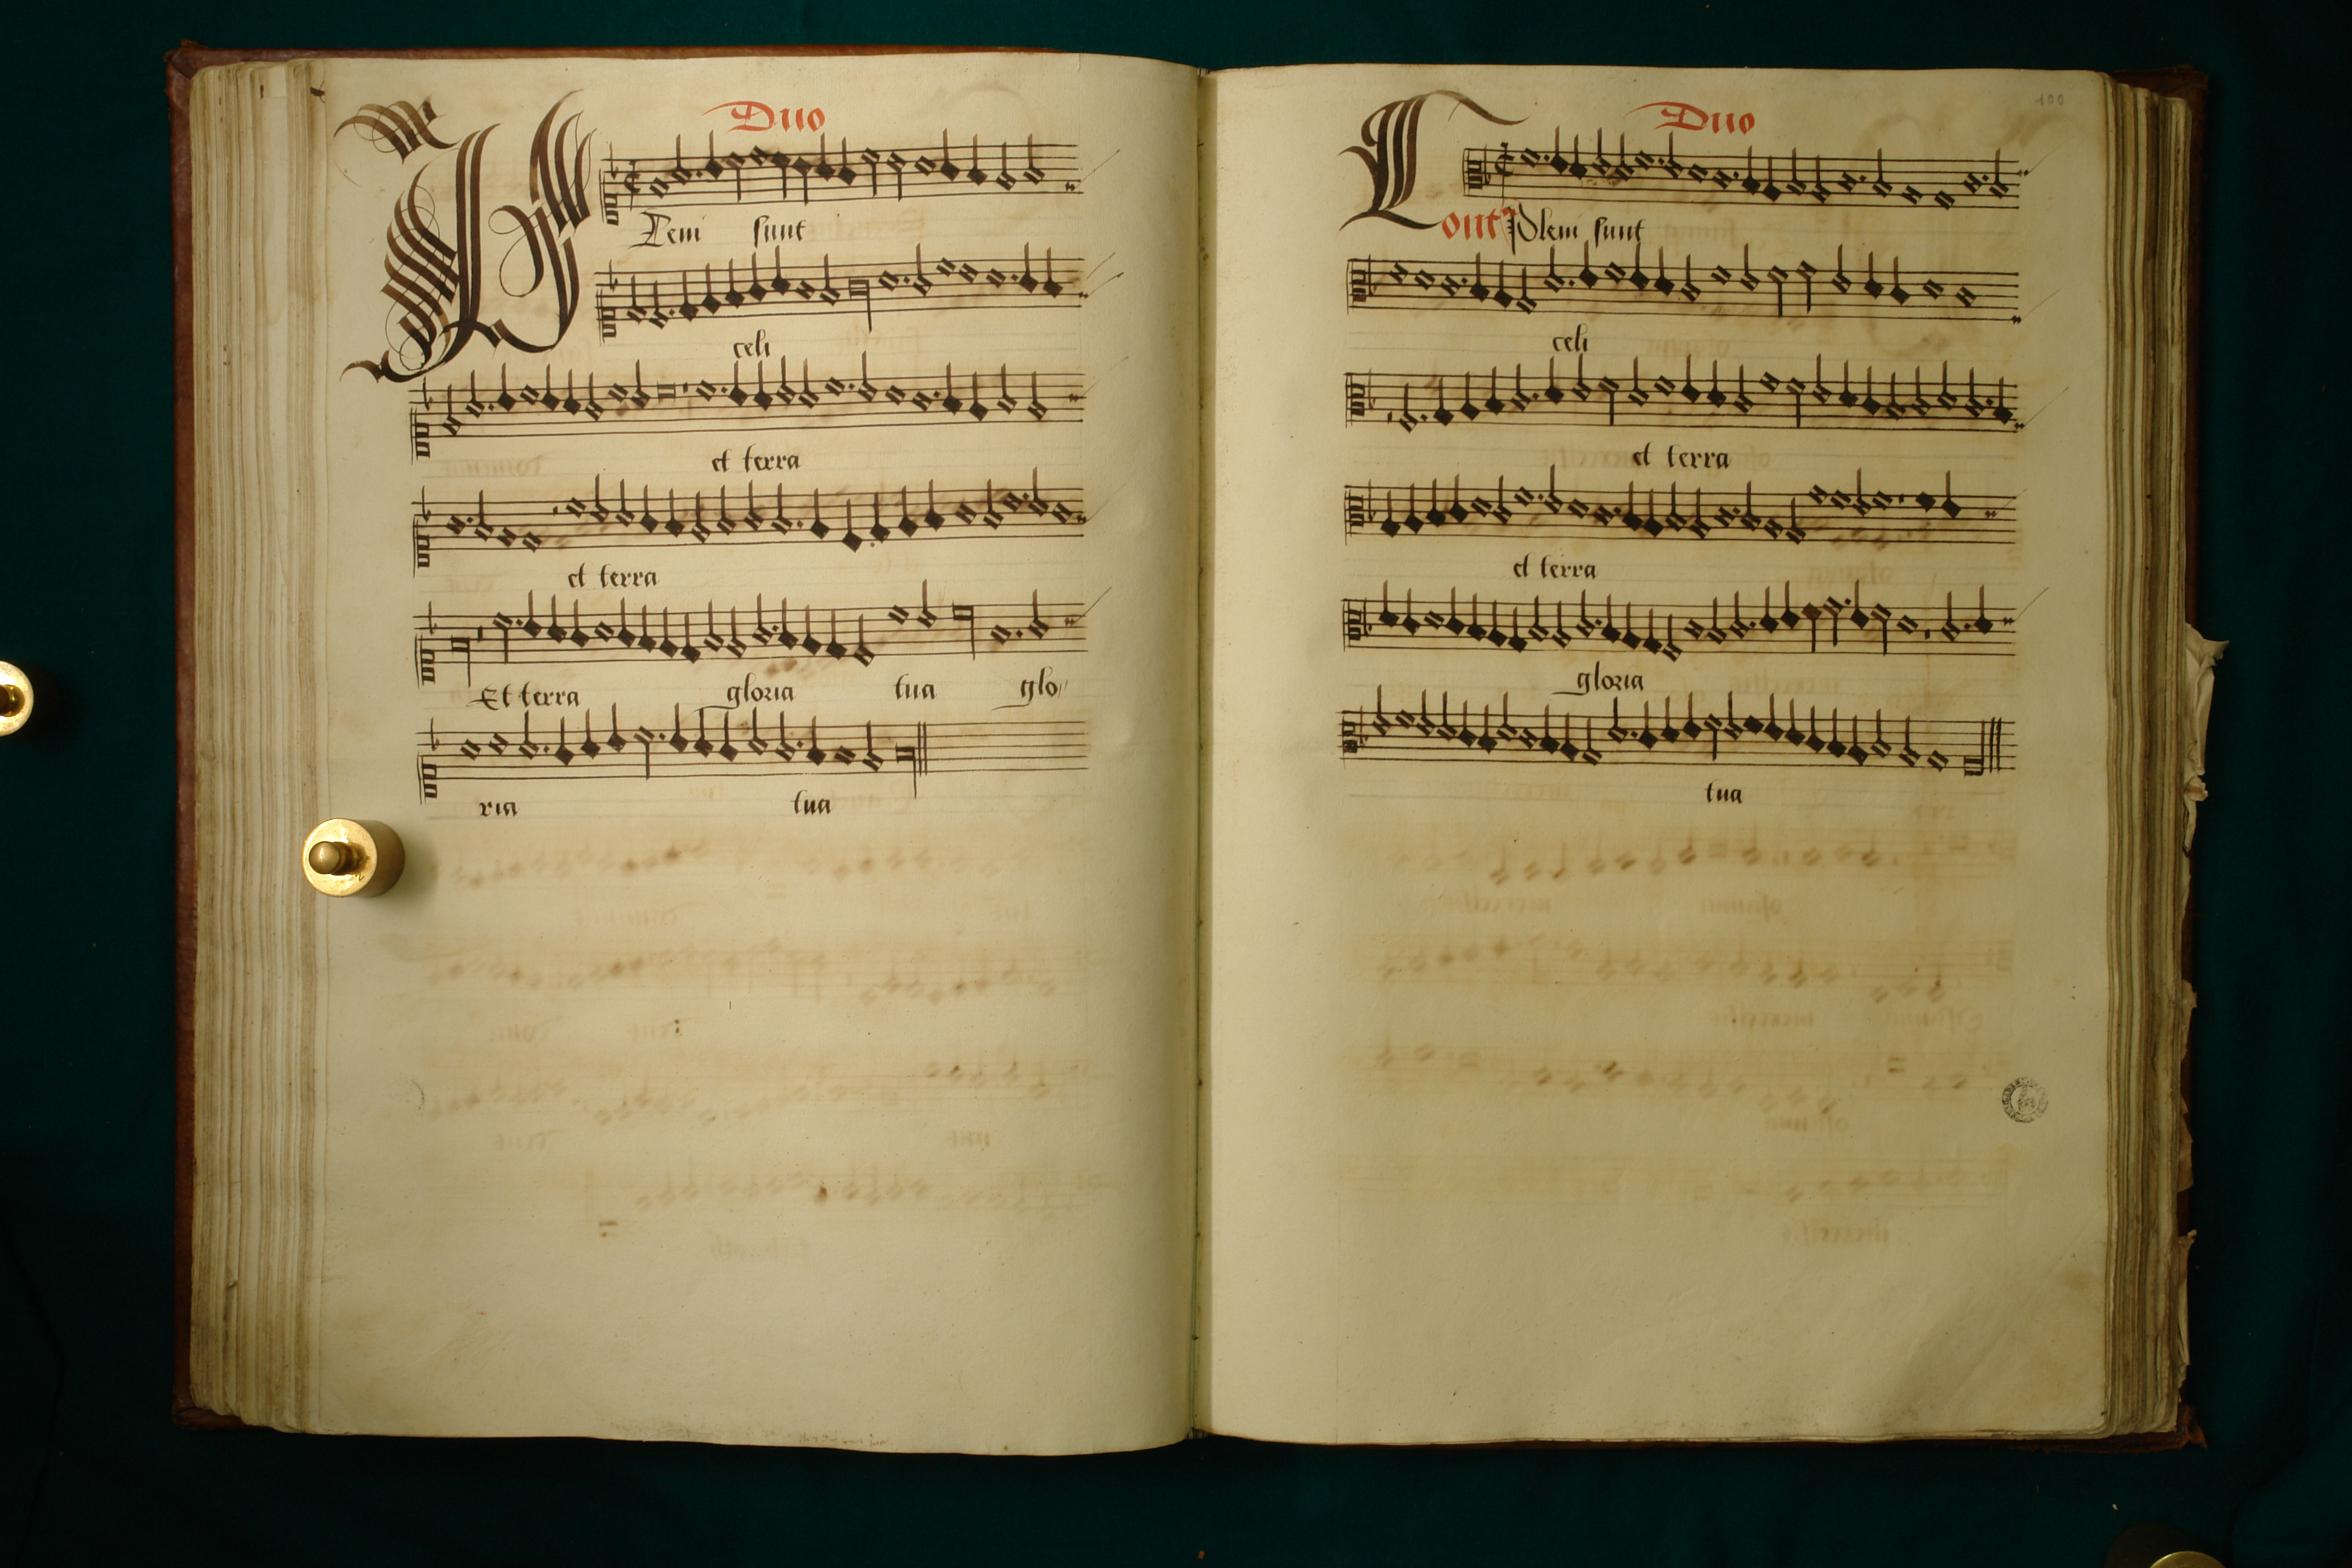 Duo
PLeni sunt
celi
et terra
et terra
Et terra gloria tua glo
ria tua
100
Duo
Cont Pleni sunt
celi
et terra
et terra
gloria
tua